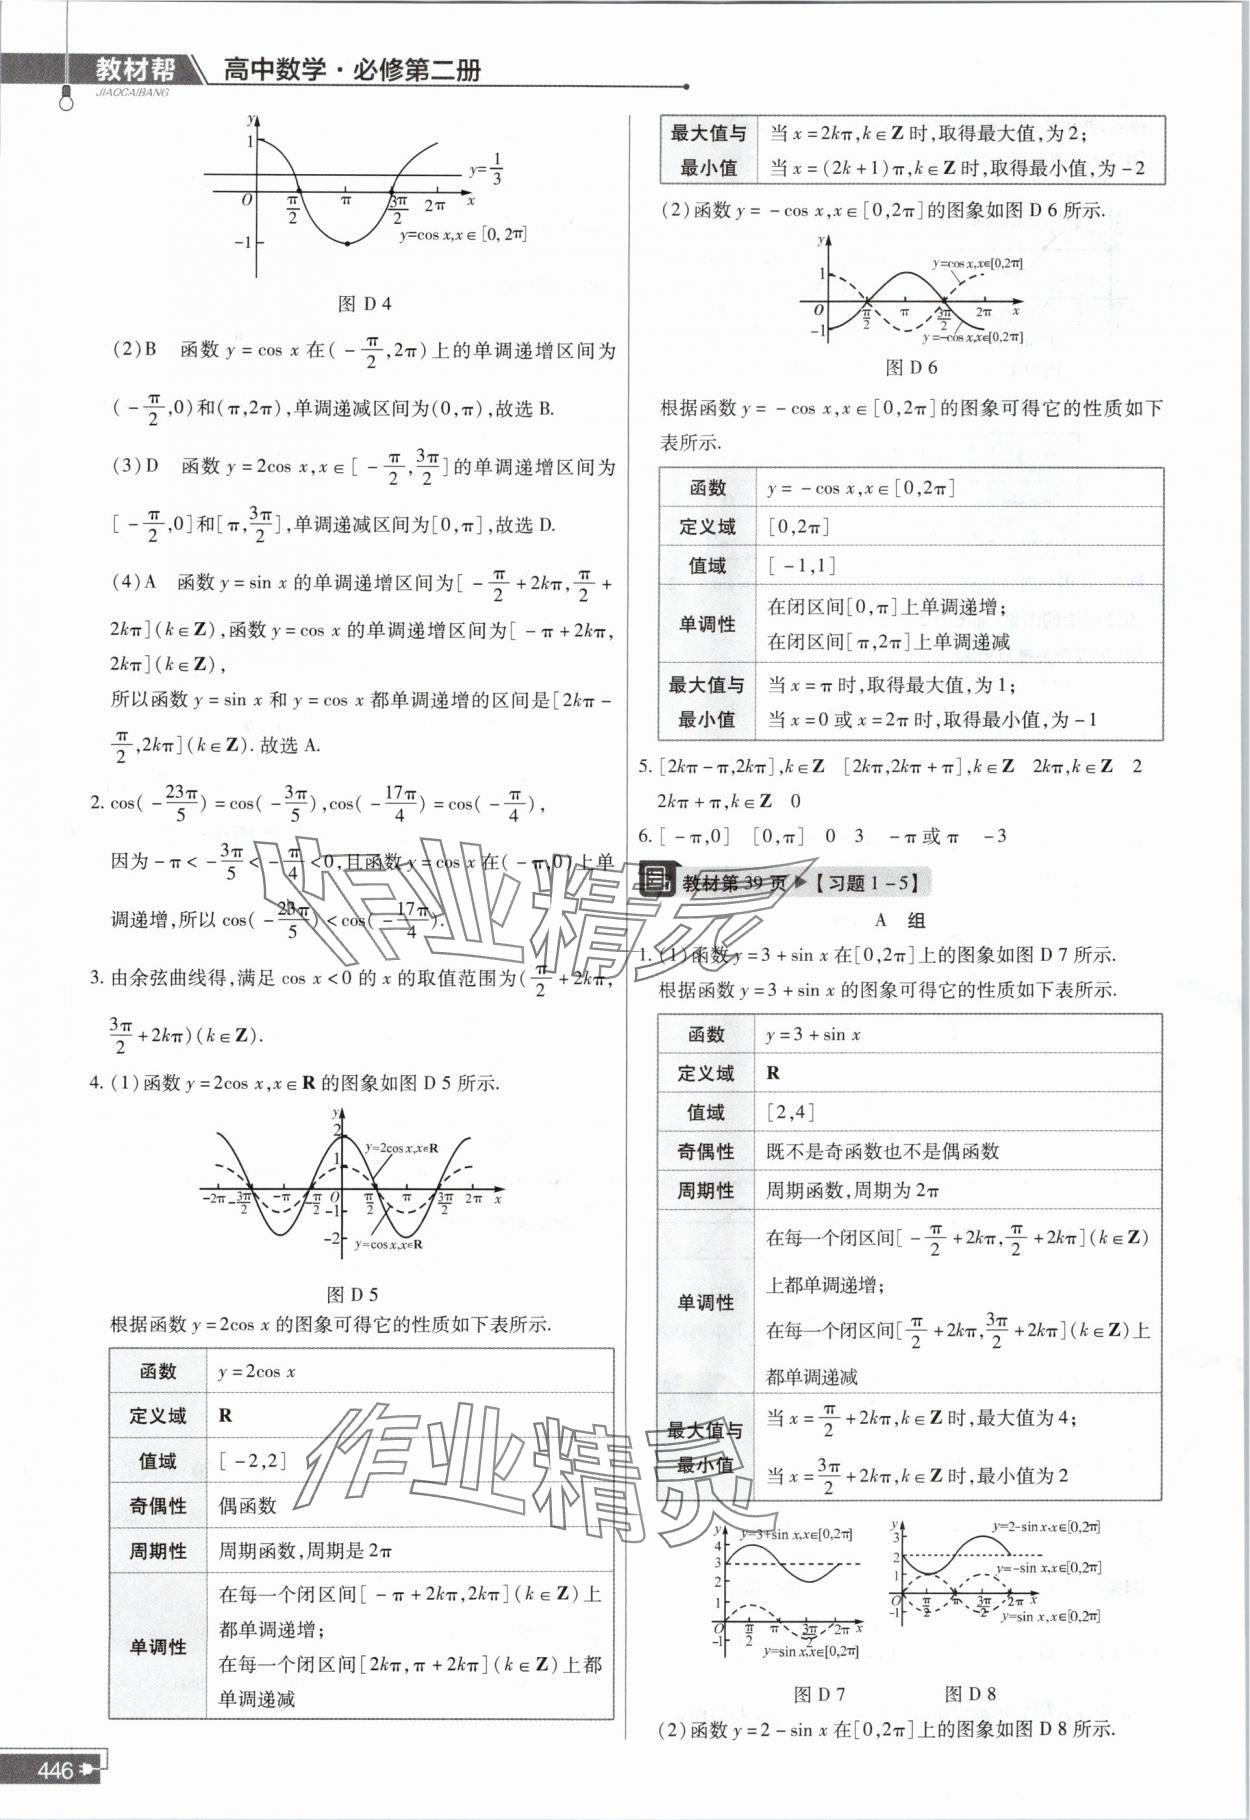 教材帮
JIAOCAIBANG
高中数学·必修第二册
y
1
y=1/3
O π/2 π 3π/2 2π x
-1
y=cos x,x∈[0,2π]
图 D 4
(2)B 函数 y=cos x 在(-π/2,2π)上的单调递增区间为
(-π/2,0)和(π,2π),单调递减区间为(0,π),故选 B.
(3)D 函数 y=2cos x,x∈[-π/2,3π/2]的单调递增区间为
[-π/2,0]和[π,3π/2],单调递减区间为[0,π],故选 D.
(4)A 函数 y=sin x 的单调递增区间为[-π/2+2kπ,π/2+
2kπ](k∈Z),函数 y=cos x 的单调递增区间为[-π+2kπ,
2kπ](k∈Z),
所以函数 y=sin x 和 y=cos x 都单调递增的区间是[2kπ-
π/2,2kπ](k∈Z).故选 A.
2. cos(-23π/5)=cos(-3π/5),cos(-17π/4)=cos(-π/4),
因为-π<-3π/5<-π/4<0,且函数 y=cos x 在(-π,0)上单
调递增,所以 cos(-23π/5)<cos(-17π/4).
3. 由余弦曲线得,满足 cos x<0 的 x 的取值范围为(π/2+2kπ,
3π/2+2kπ)(k∈Z).
4. (1)函数 y=2cos x,x∈R 的图象如图 D 5 所示.
y
2
y=2cos x,x∈R
1
-2π -3π/2 -π -π/2 O π/2 π 3π/2 2π x
-1
-2
y=cos x,x∈R
图 D 5
根据函数 y=2cos x 的图象可得它的性质如下表所示.
函数 y=2cos x
定义域 R
值域 [-2,2]
奇偶性 偶函数
周期性 周期函数,周期是 2π
单调性
在每一个闭区间[-π+2kπ,2kπ](k∈Z)上
都单调递增;
在每一个闭区间[2kπ,π+2kπ](k∈Z)上都
单调递减
446
最大值与
最小值
当 x=2kπ,k∈Z 时,取得最大值,为 2;
当 x=(2k+1)π,k∈Z 时,取得最小值,为-2
(2)函数 y=-cos x,x∈[0,2π]的图象如图 D 6 所示.
y
y=cos x,x∈[0,2π]
1
O π/2 π 3π/2 2π x
-1
y=-cos x,x∈[0,2π]
图 D 6
根据函数 y=-cos x,x∈[0,2π]的图象可得它的性质如下
表所示.
函数 y=-cos x,x∈[0,2π]
定义域 [0,2π]
值域 [-1,1]
单调性
在闭区间[0,π]上单调递增;
在闭区间[π,2π]上单调递减
最大值与
最小值
当 x=π 时,取得最大值,为 1;
当 x=0 或 x=2π 时,取得最小值,为-1
5. [2kπ-π,2kπ],k∈Z [2kπ,2kπ+π],k∈Z 2kπ,k∈Z 2
2kπ+π,k∈Z 0
6. [-π,0] [0,π] 0 3 -π 或 π -3
教材第 39 页▶【习题 1-5】
A 组
1. (1)函数 y=3+sin x 在[0,2π]上的图象如图 D 7 所示.
根据函数 y=3+sin x 的图象可得它的性质如下表所示.
函数 y=3+sin x
定义域 R
值域 [2,4]
奇偶性 既不是奇函数也不是偶函数
周期性 周期函数,周期为 2π
单调性
在每一个闭区间[-π/2+2kπ,π/2+2kπ](k∈Z)
上都单调递增;
在每一个闭区间[π/2+2kπ,3π/2+2kπ](k∈Z)上
都单调递减
最大值与
最小值
当 x=π/2+2kπ,k∈Z 时,最大值为 4;
当 x=3π/2+2kπ,k∈Z 时,最小值为 2
y
y=3+sin x,x∈[0,2π]
4
3
2
1
O π/2 π 3π/2 2π x
-1
y=sin x,x∈[0,2π]
图 D 7
y
y=2-sin x,x∈[0,2π]
3
2
1
y=-sin x,x∈[0,2π]
O π/2 π 3π/2 2π x
-1
y=sin x,x∈[0,2π]
图 D 8
(2)函数 y=2-sin x 在[0,2π]上的图象如图 D 8 所示.
作业精灵
作业精灵